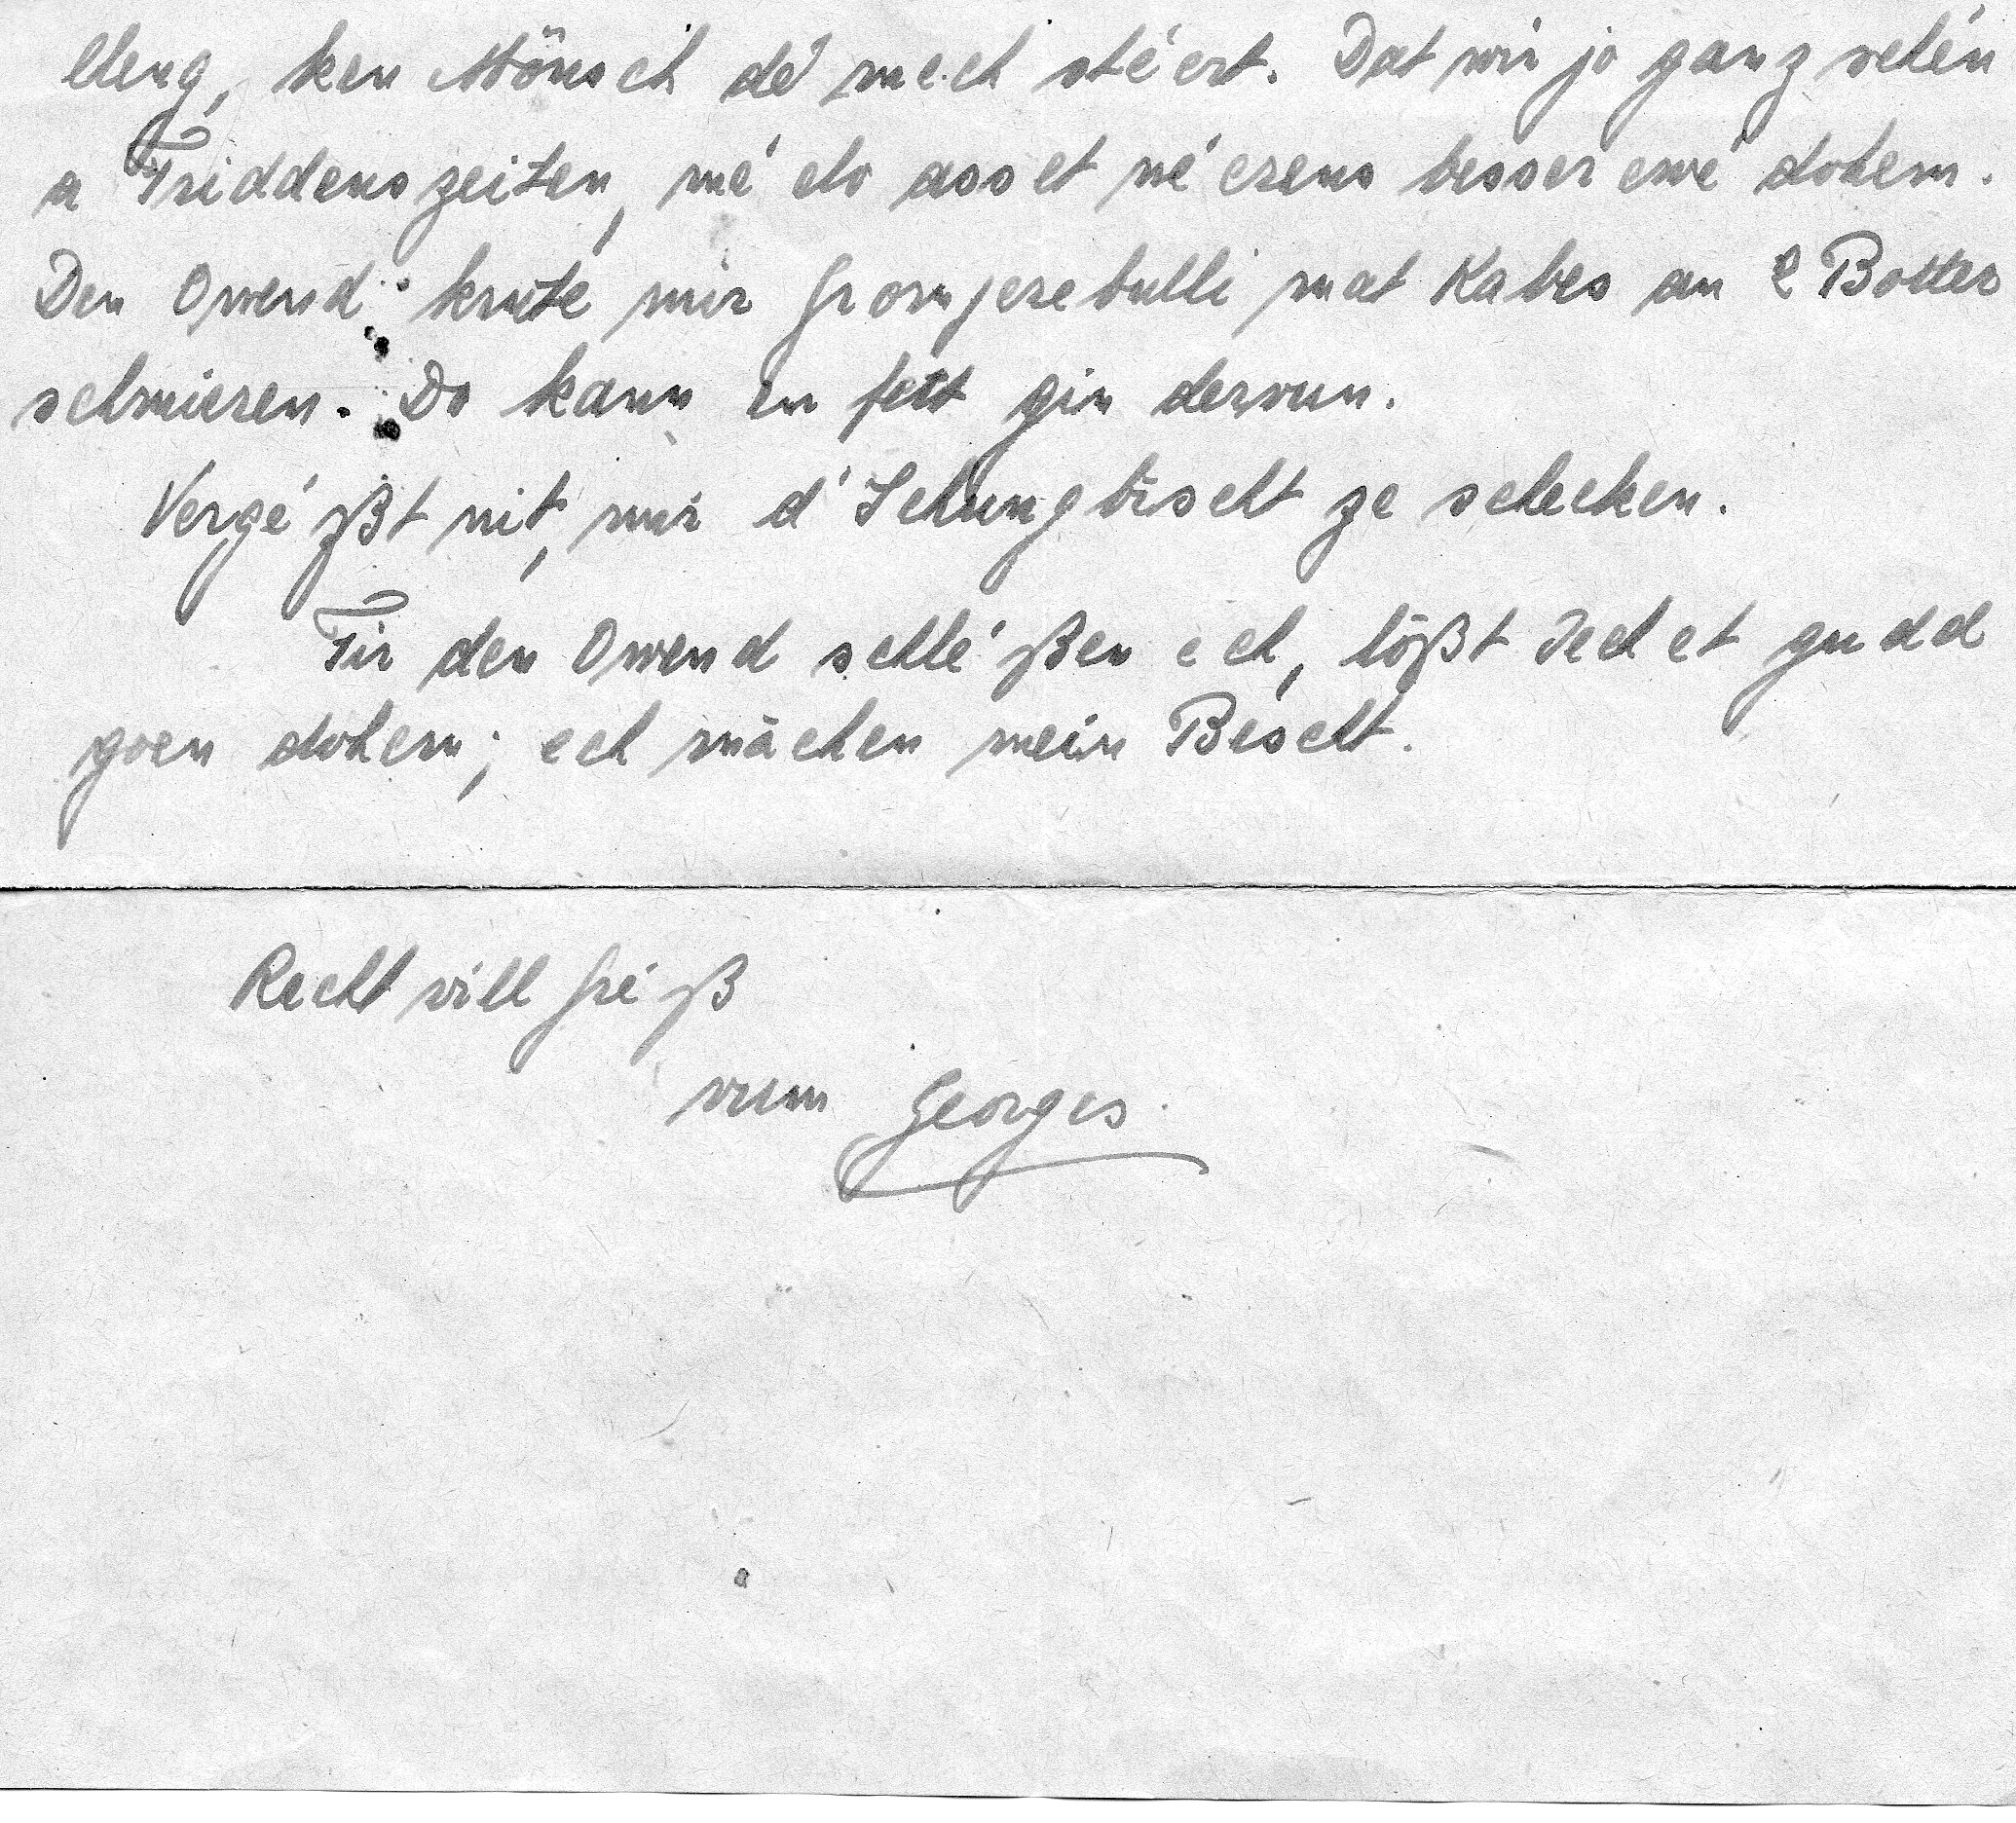 lleng, ken Mönsch dé mech stéert. Dat wir jo ganz schén
a Friddenszeiten, mé elo ass et néerens besser ewé dohem.
Den Owend krute mir Gromperebulli mat Kabes an 2 Botter
schmieren. Do kann en fett gin dervun.
Vergéßt nit, mir d'Schungbischt ze schecken.
Fir den Owend schléßen ech, lößt Iech et gudd
goen dohem; ech mächen mein Béscht.
Recht vill Gréß
vum Georges